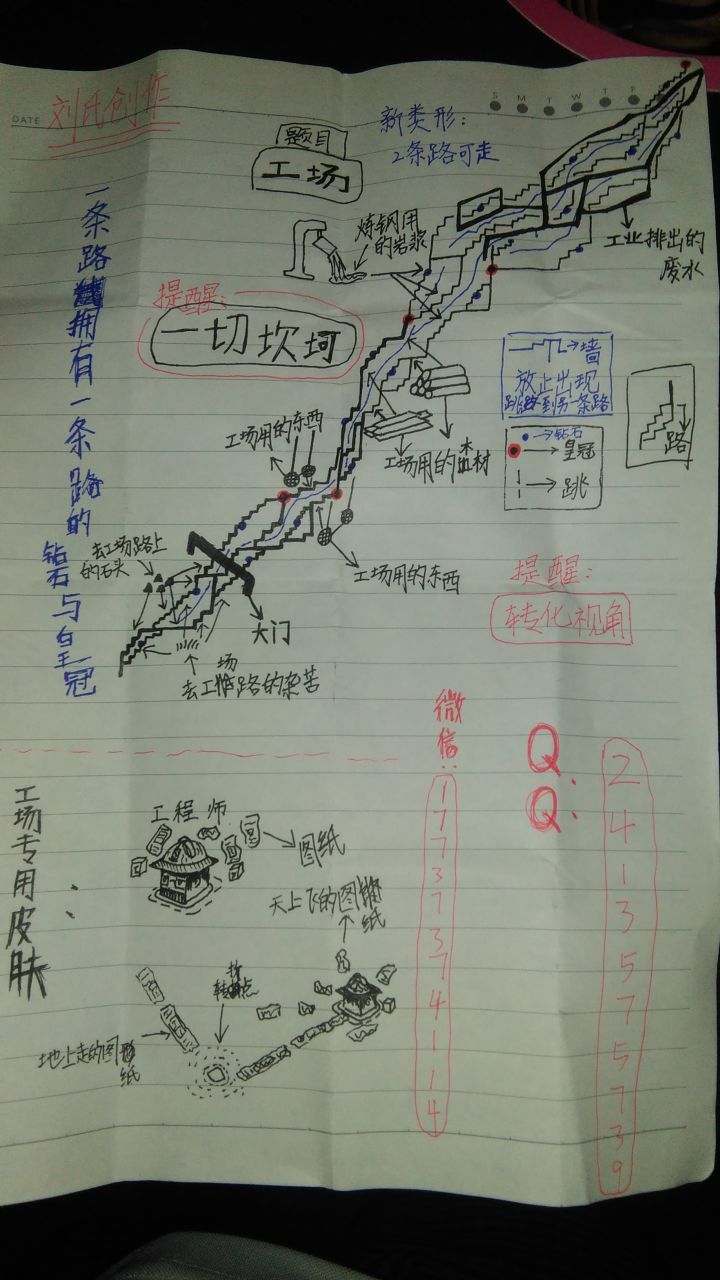 DATE
S M T W T F
刘氏创作
题目
工场
新类形:
2条路可走
炼钢用
的岩浆
工业排出的
废水
提醒:
一切坎坷
→墙
放止出现
到另一条路
路
→钻石
→皇冠
→跳
一条路拥有一条路的
钻石与皇冠
工场用的东西
工场用的 材
去工场路上
的石头
工场用的东西
大门
场
去工作路的杂苦
提醒:
转化视角
微信:
17737374114
QQ:
2413575739
工场专用皮肤:
工程师
图纸
天上飞的图
纸
折
转 点
地上走的图
纸